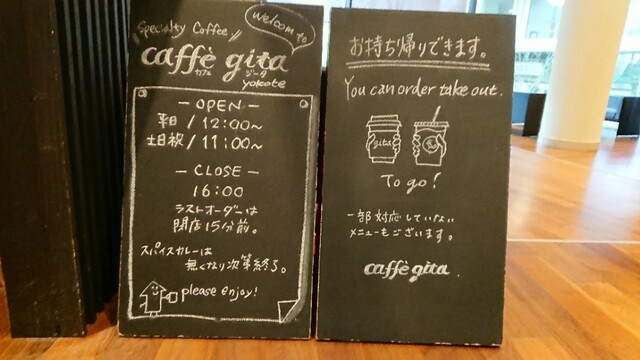 Specialty Coffee
welcome to
caffè gita
カフェ ジータ
yokote
— OPEN —
平日 / 12:00~
土日祝 / 11:00~
— CLOSE —
16:00
ラストオーダーは
閉店15分前。
スパイスカレーは
無くなり次第終了。
please enjoy!
お持ち帰りできます。
You can order take out.
gita
To go!
一部対応していない
メニューもございます。
caffè gita.